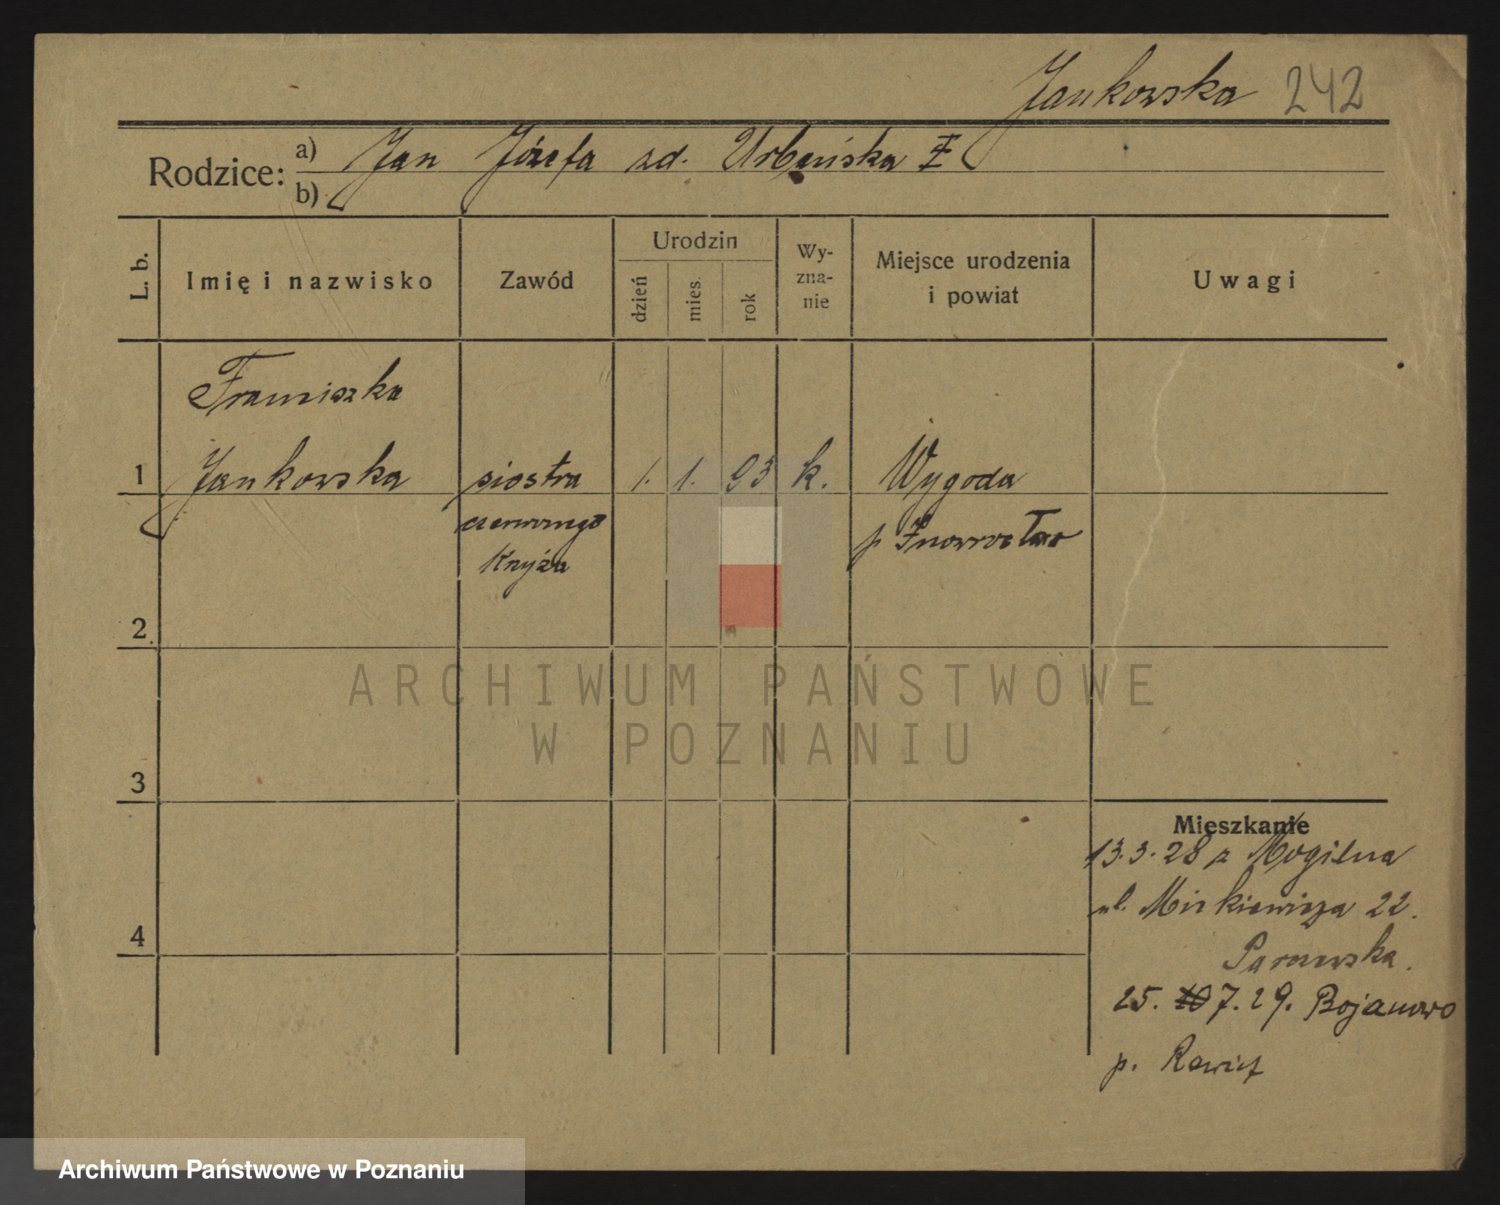 Jankowska 242
Rodzice: a) Jan Józefa zd. Urbańska
b)
L. b.
Imię i nazwisko
Zawód
Urodzin
dzień
mies.
rok
Wy-
zna-
nie
Miejsce urodzenia
i powiat
Uwagi
Franciszka
1 Jankowska siostra 1. 1. 93 k. Wygoda
czerwonego p Inowrocław
Krzyża
2
3
4
Mieszkanie
13.3.28 z Mogilna
ul. Mickiewicza 22.
25. 7.29. Bojanowo
p. Rawicz
ARCHIWUM PAŃSTWOWE
W POZNANIU
Archiwum Państwowe w Poznaniu